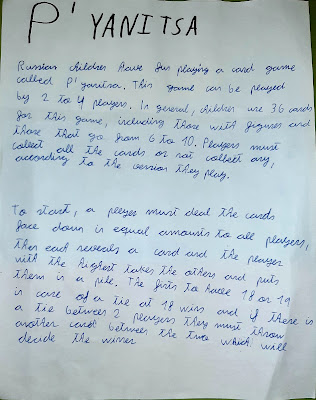 P'YANITSA
Russian children have fun playing a card game
called P'yanitsa. This game can be played
by 2 to 4 players. In general, children use 36 cards
for this game, including those with figures and
those that go from 6 to 10. Players must
collect all the cards or not collect any,
according to the version they play.
To start, a player must deal the cards
face down in equal amounts to all players,
then each reveals a card and the player
with the highest takes the others and puts
them in a pile. The firts to have 18 or 19
in case of a tie at 18 wins and if there is
a tie between 2 players they must throw
another card between the two which will
decide the winner